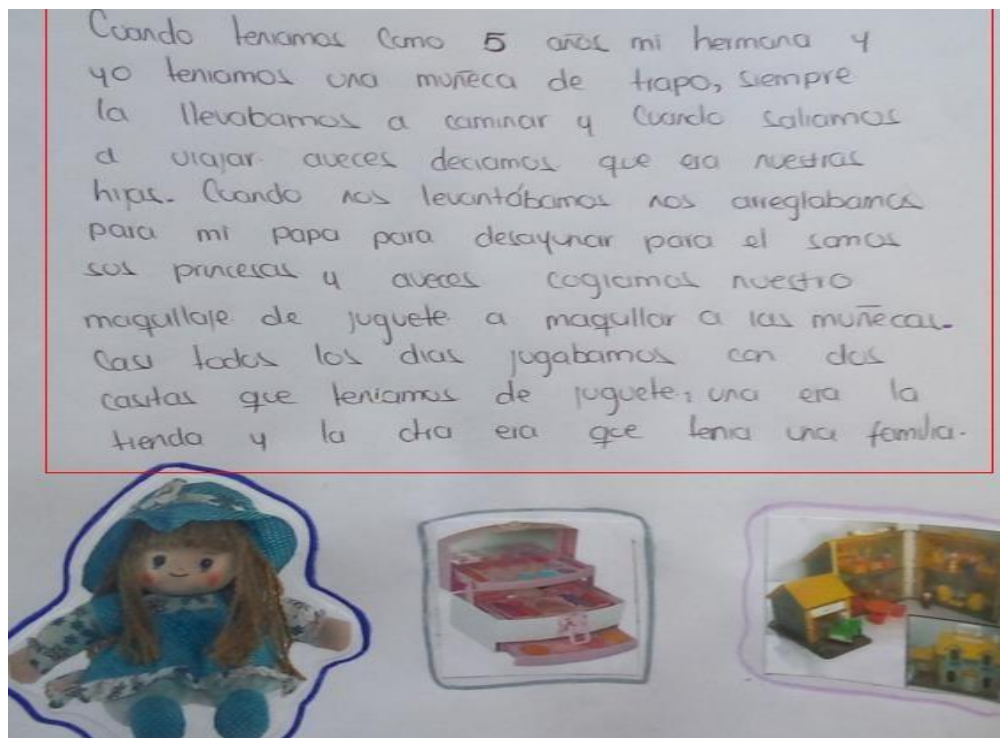 Cuando teniamos como 5 años mi hermana y
yo teniamos una muñeca de trapo, siempre
la llevabamos a caminar y Cuando saliamos
a viajar. aveces deciamos que era nuestras
hijas. Cuando nos levantábamos nos arreglabamos
para mi papa para desayunar para el somos
sus princesas y aveces cogiamos nuestro
maquillaje de juguete a maquillar a las muñecas.
Casi todos los dias jugabamos con dos
casitas que teniamos de juguete, una era la
tienda y la otra era que tenia una familia.